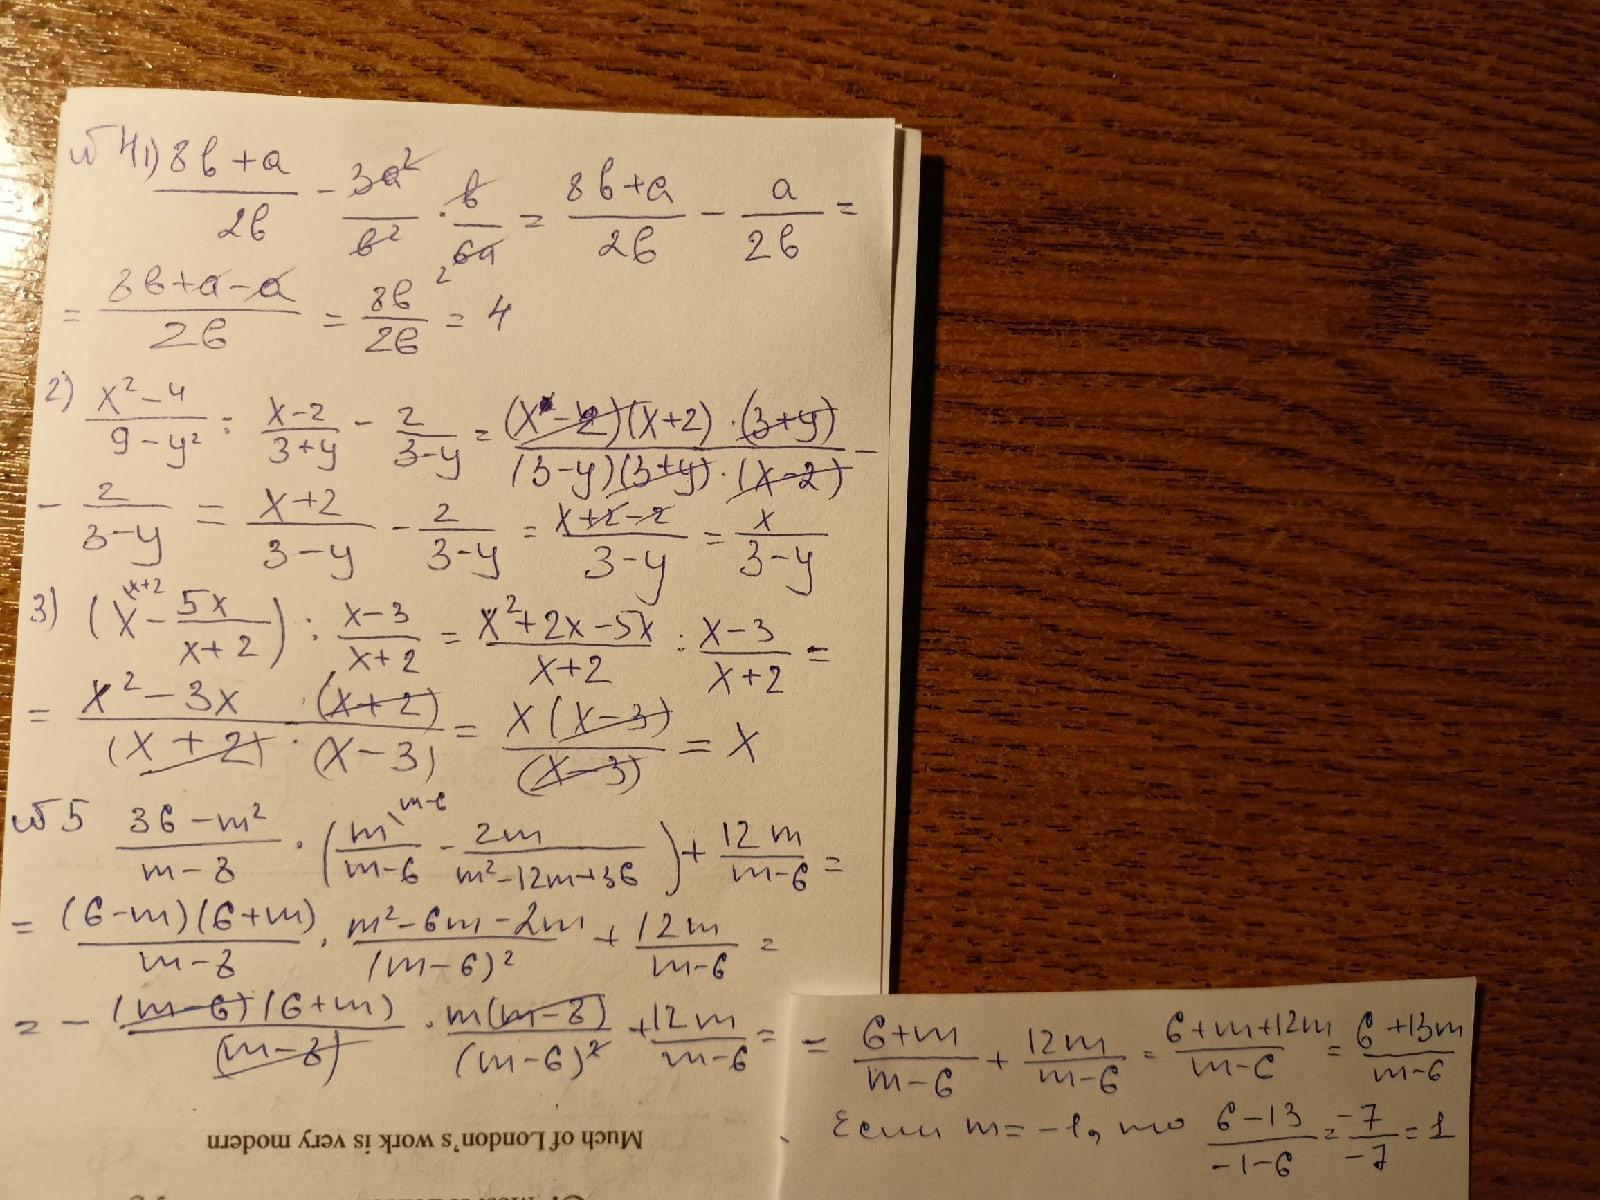 №4 1) (8b+a)/(2b) - (3a²)/(b²) · b/(6a) = (8b+a)/(2b) - a/(2b) =
= (8b+a-a)/(2b) = (8b)/(2b) = 4
2) (x²-4)/(9-y²) : (x-2)/(3+y) - 2/(3-y) = ((x-2)(x+2)·(3+y))/((3-y)(3+y)·(x-2)) -
- 2/(3-y) = (x+2)/(3-y) - 2/(3-y) = (x+2-2)/(3-y) = x/(3-y)
3) (x^{\x+2} - (5x)/(x+2)) : (x-3)/(x+2) = (x²+2x-5x)/(x+2) : (x-3)/(x+2) =
= (x²-3x · (x+2))/((x+2)·(x-3)) = (x(x-3))/((x-3)) = x
№5 (36-m²)/(m-8) · (m^{\m-6}/(m-6) - (2m)/(m²-12m+36)) + (12m)/(m-6) =
= ((6-m)(6+m))/(m-8) · (m²-6m-2m)/((m-6)²) + (12m)/(m-6) =
= - ((m-6)(6+m))/((m-8)) · (m(m-8))/((m-6)²) + (12m)/(m-6) =
= (6+m)/(m-6) + (12m)/(m-6) = (6+m+12m)/(m-6) = (6+13m)/(m-6)
Если m=-1, то (6-13)/(-1-6) = (-7)/(-7) = 1
Much of London's work is very modern